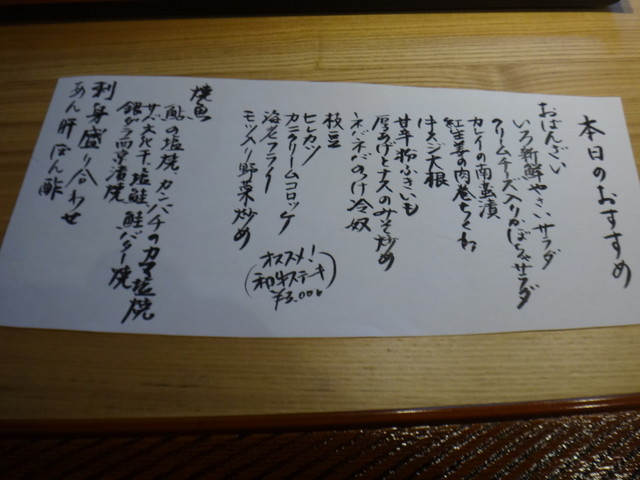 本日のおすすめ
おばんざい
いろ新鮮やさいサラダ
クリームチーズ入りかぼちゃサラダ
カレイの南蛮漬
紅生姜の肉巻ちくわ
牛スジ大根
粉ふきいも
厚あげとナスのみそ炒め
ネバネバのっけ冷奴
枝豆
ヒレカツ
カニクリームコロッケ
海老フライ
モツ入り野菜炒め
オススメ!
和牛ステーキ
¥3,000
焼魚
鮎の塩焼 カンパチのカマ塩焼
サバ文化干 塩鮭 鮭バター焼
銀ダラ西京漬焼
刺身盛り合わせ
あん肝ぽん酢